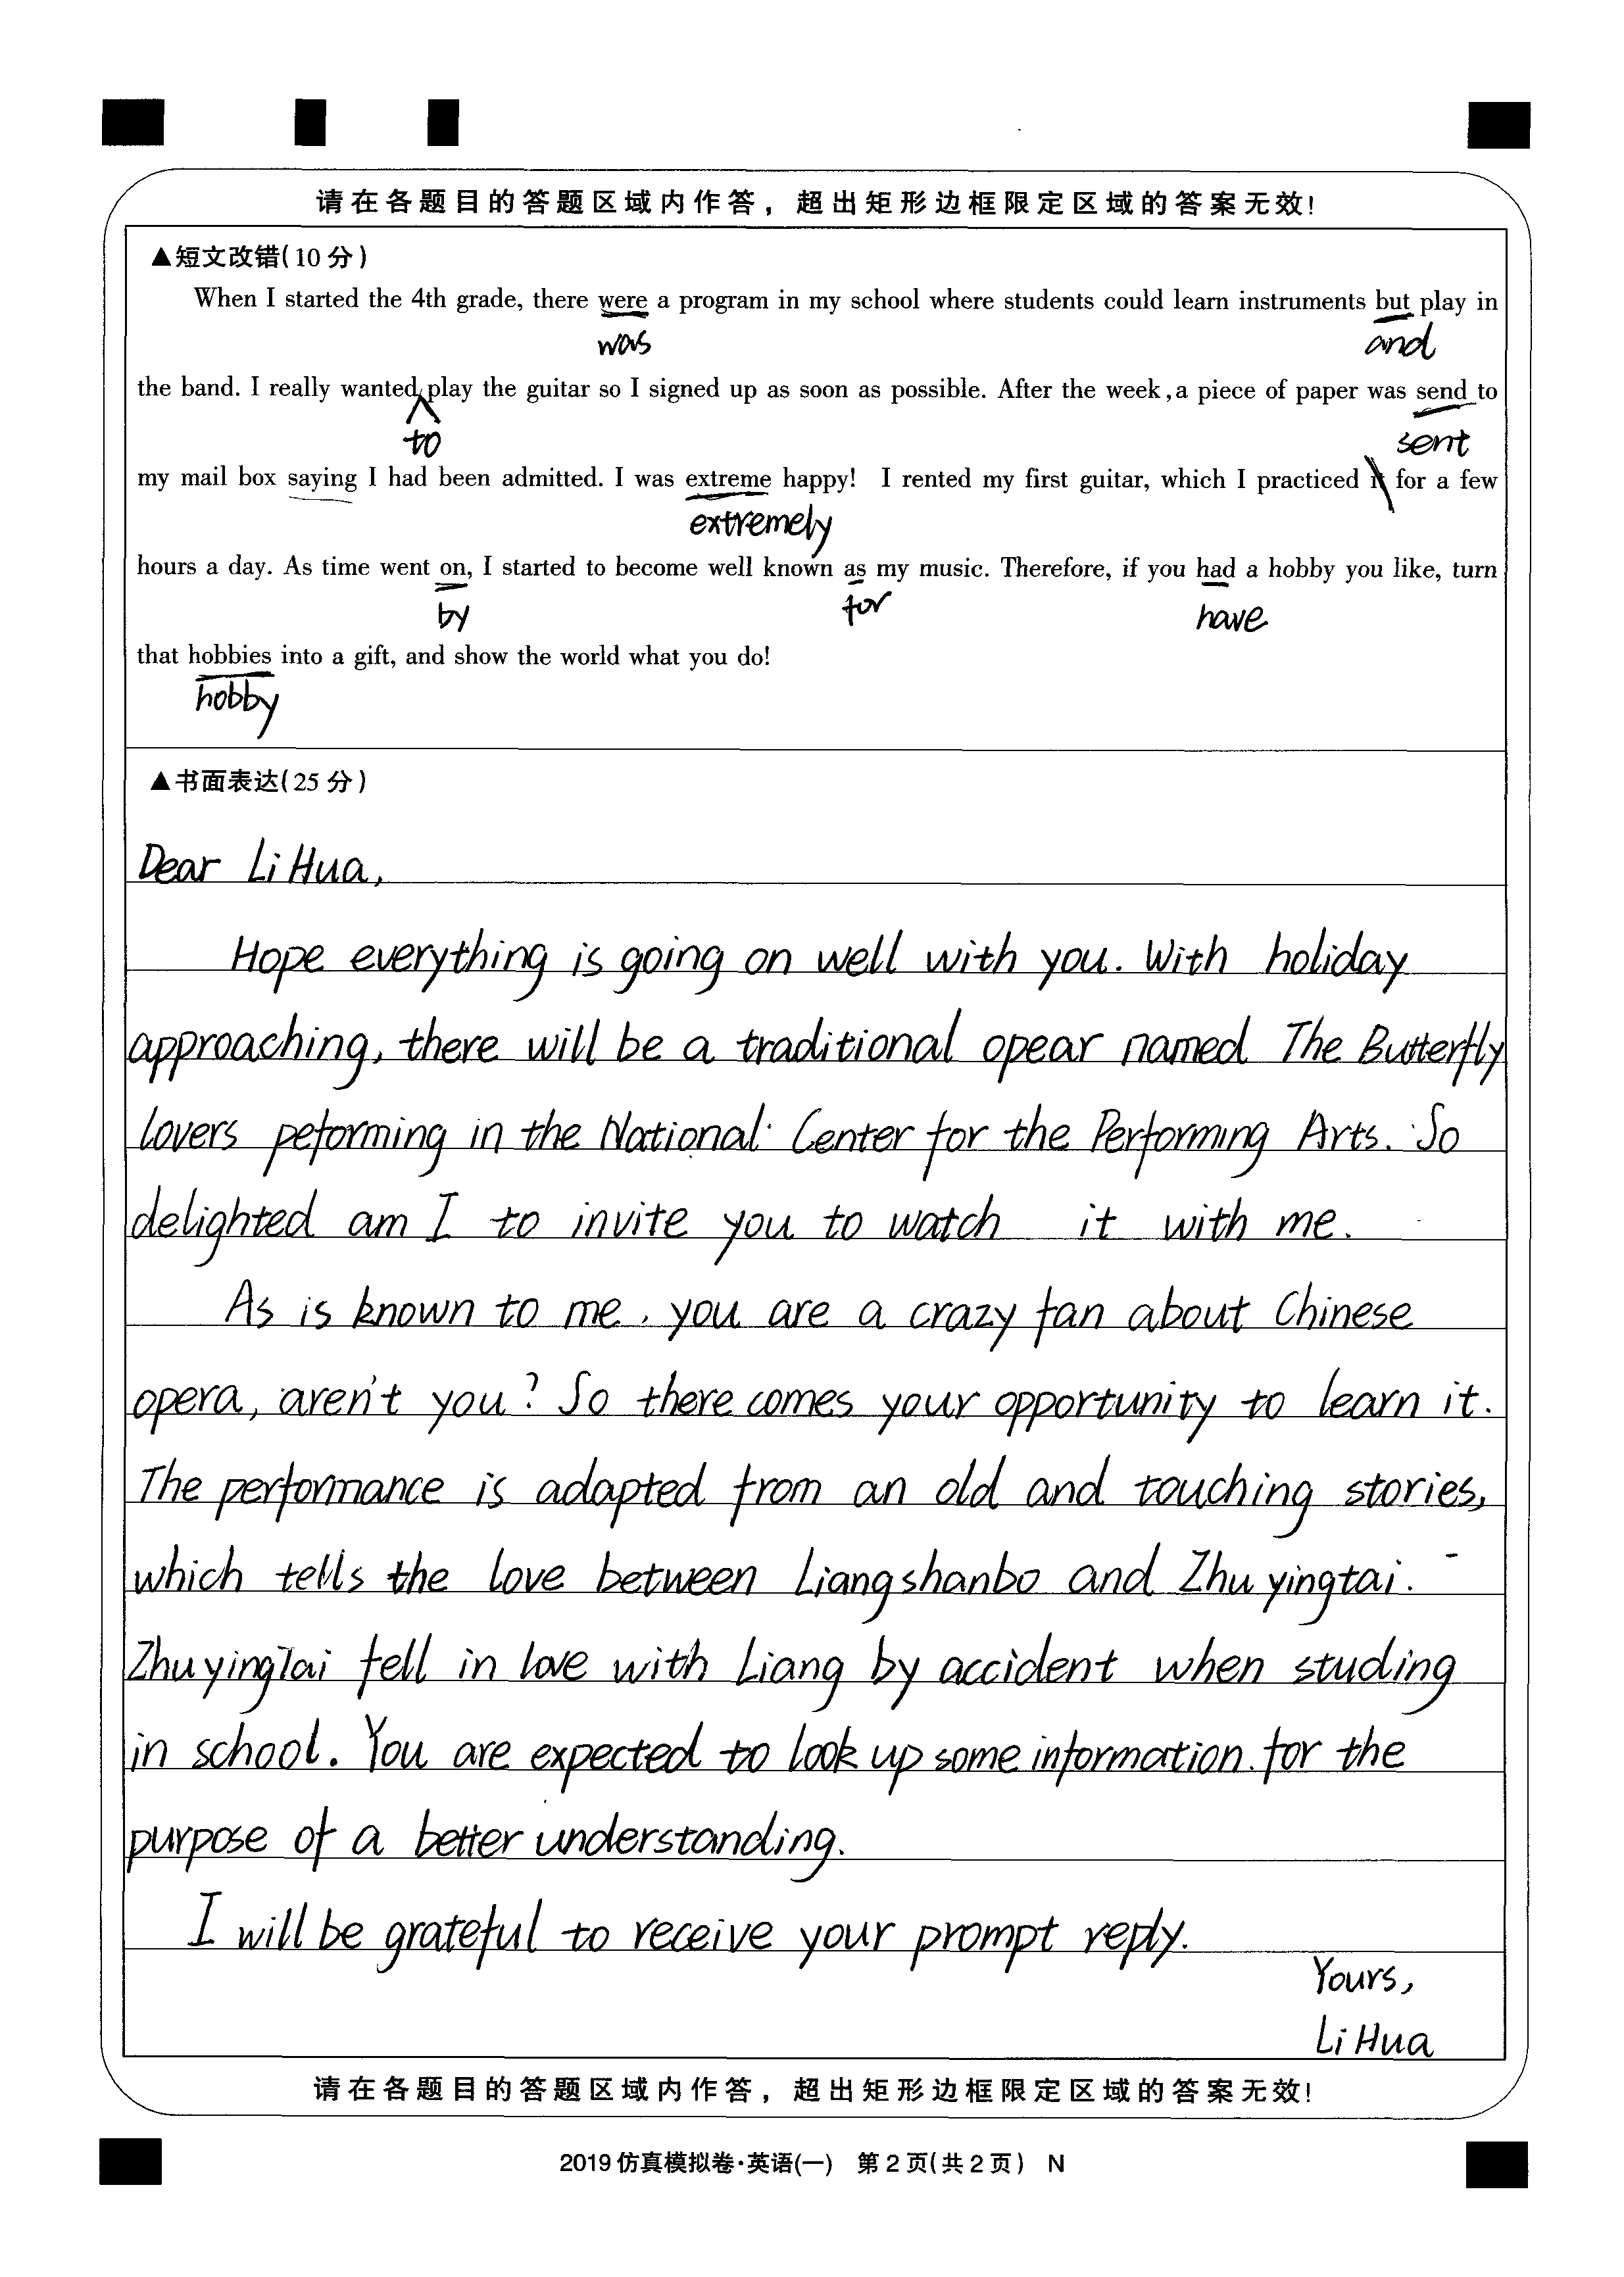 请在各题目的答题区域内作答，超出矩形边框限定区域的答案无效!
▲短文改错(10分)
When I started the 4th grade, there were a program in my school where students could learn instruments but play in
was and
the band. I really wanted play the guitar so I signed up as soon as possible. After the week, a piece of paper was send to
to sent
my mail box saying I had been admitted. I was extreme happy! I rented my first guitar, which I practiced it for a few
extremely
hours a day. As time went on, I started to become well known as my music. Therefore, if you had a hobby you like, turn
by for have
that hobbies into a gift, and show the world what you do!
hobby
▲书面表达(25分)
Dear Li Hua,
Hope everything is going on well with you. With holiday
approaching, there will be a traditional opear named The Butterfly
lovers peforming in the National Center for the Performing Arts. So
delighted am I to invite you to watch it with me.
As is known to me, you are a crazy fan about Chinese
opera, aren't you? So there comes your opportunity to learn it.
The performance is adapted from an old and touching stories,
which tells the love between Liangshanbo and Zhu yingtai.
Zhu yingTai fell in love with Liang by accident when studing
in school. You are expected to look up some information for the
purpose of a better understanding.
I will be grateful to receive your prompt reply.
Yours,
Li Hua
请在各题目的答题区域内作答，超出矩形边框限定区域的答案无效!
2019仿真模拟卷·英语(一) 第2页(共2页) N